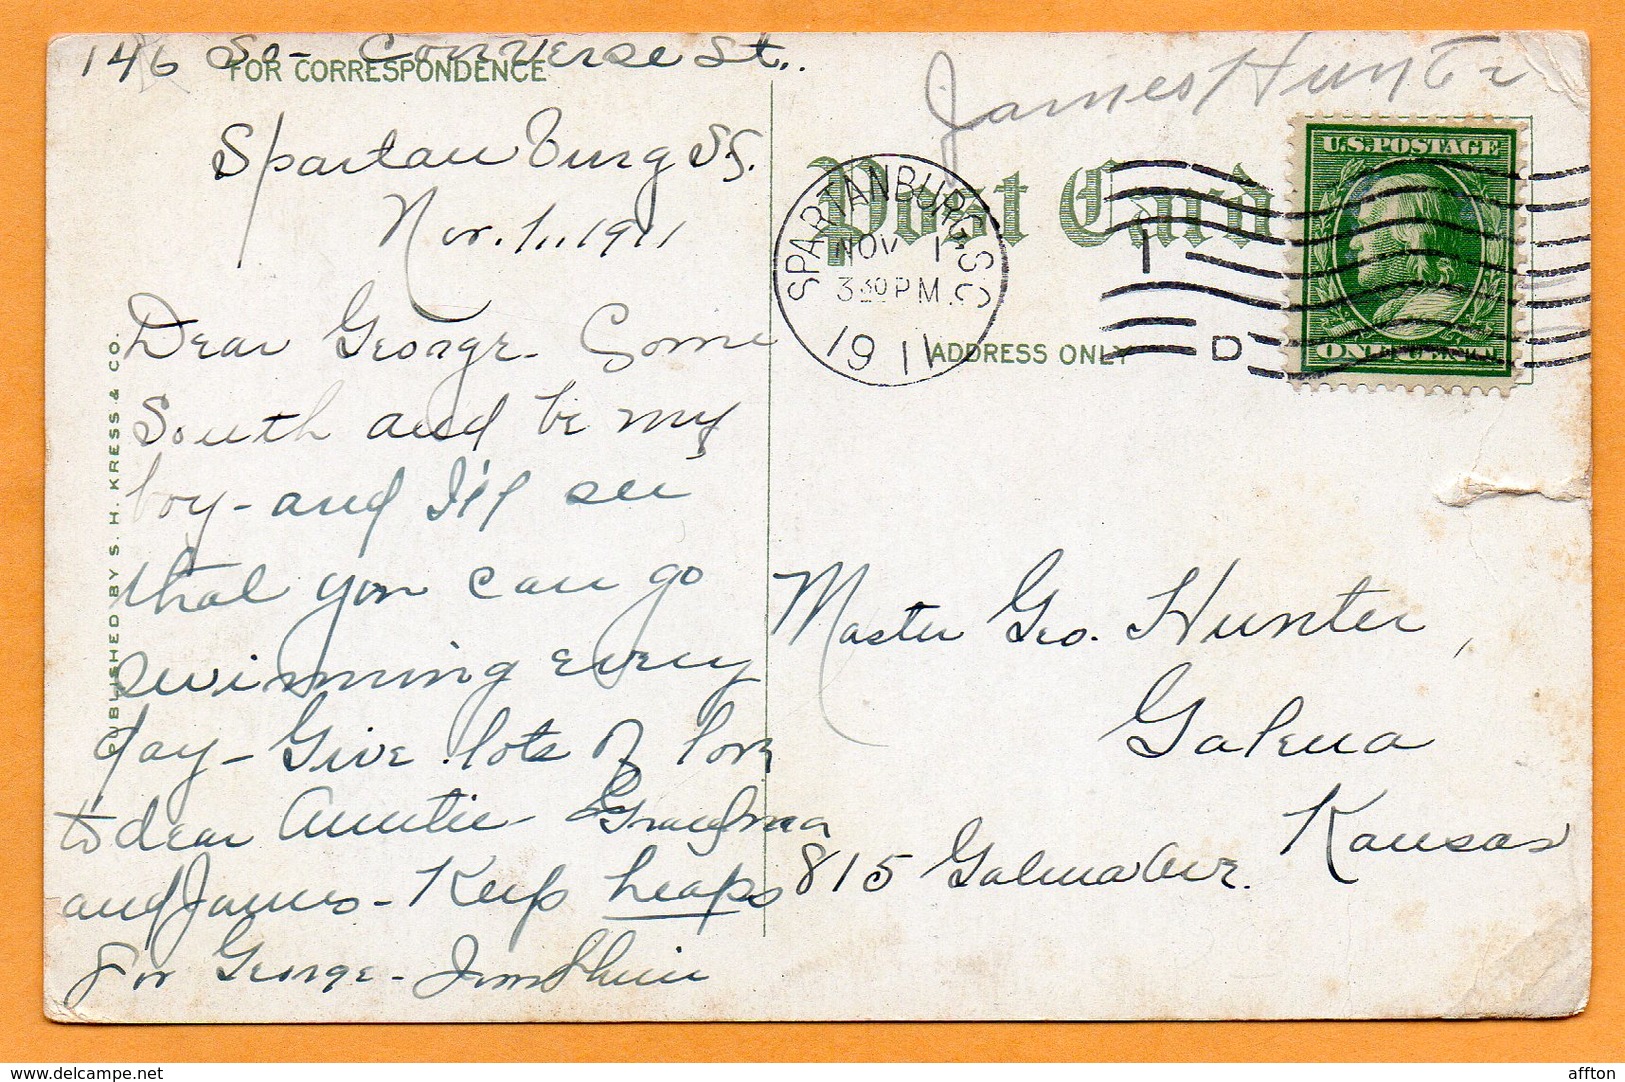 146 So- Converse St.
FOR CORRESPONDENCE
Spartanburg SC.
Nov. 1., 1911
Dear George- Come
South and be my
boy- and I'll see
that you can go
swimming every
day- Give lots of love
to dear Auntie- Grandma
and James- Keep heaps
for George-
PUBLISHED BY S. H. KRESS & CO.
James Hunter
Post Card
SPARTANBURG, S.C.
NOV 1
3 30 P M.
1911
1
D
U.S. POSTAGE
ONE CENT
ADDRESS ONLY
Master Geo. Hunter,
Galena
Kansas
815 Galena Ave.
www.delcampe.net
affton